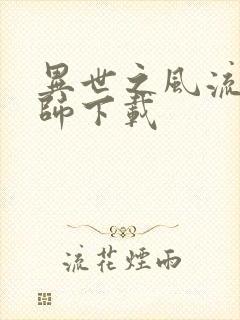 異世之風流
師下載
流花煙雨